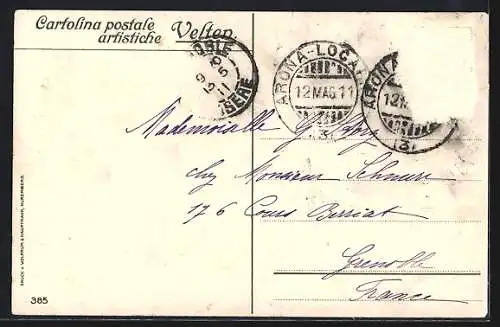 Cartolina postale
artistiche Velten
ARONA-LOCA
12 MAG 11
(3)
ARONA
12 M
(3)
Mademoiselle G.
chez Monsieur
176 Cours Berriat
Grenoble
France
385